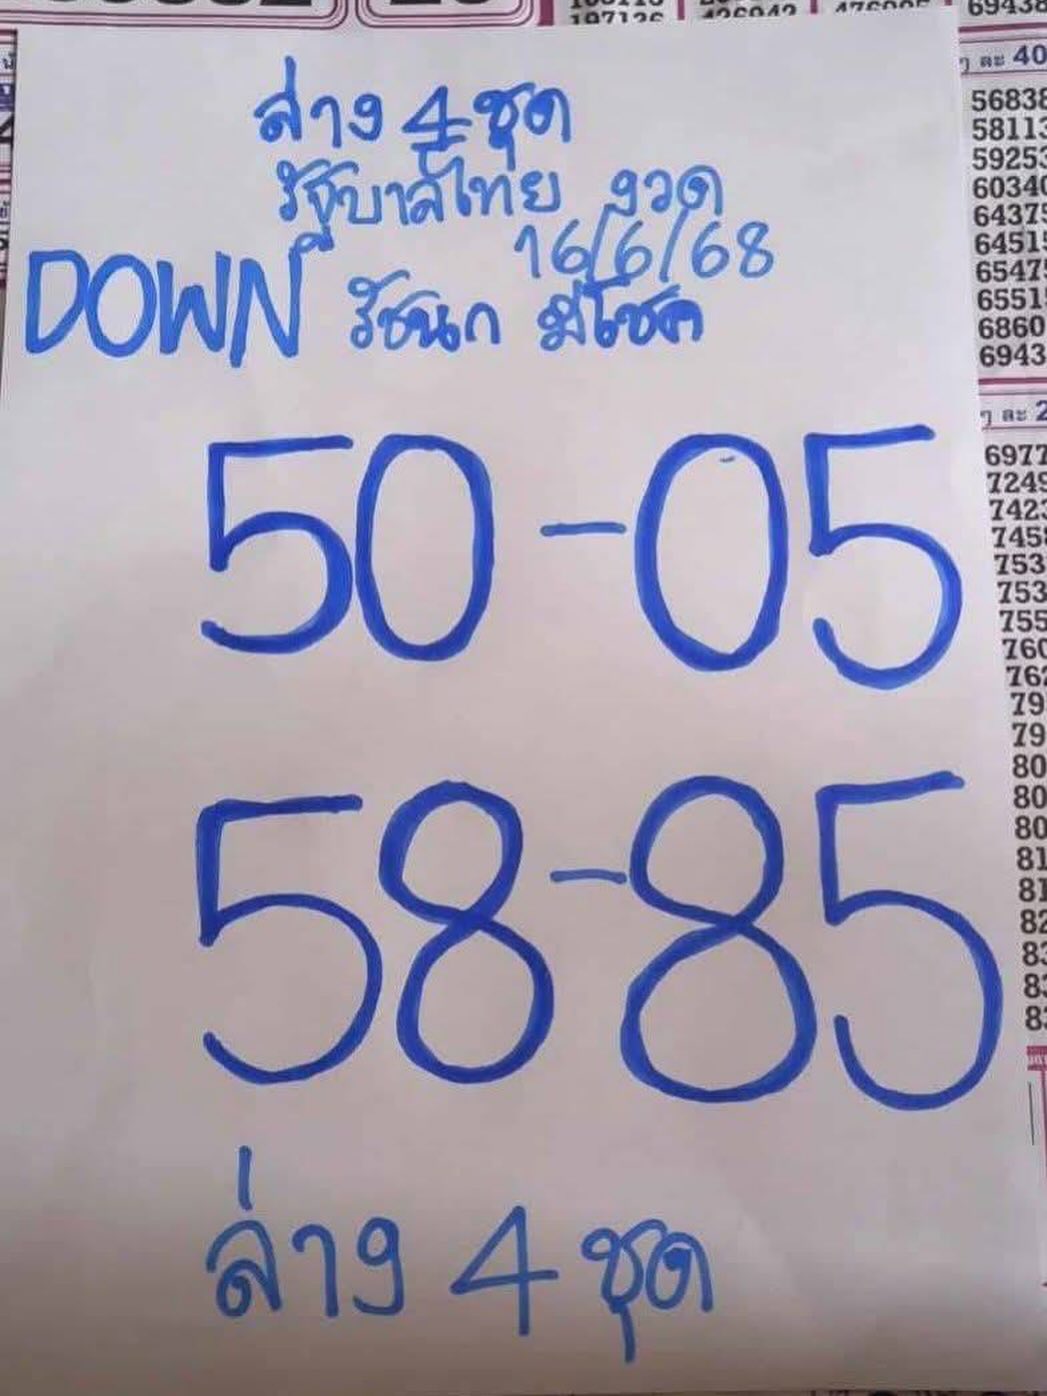 ล่าง 4 ชุด
รัฐบาลไทย งวด
16/6/68
DOWN รัชนก มีโชค
50-05
58-85
ล่าง 4 ชุด
197126
426942
6943
ๆ ละ 40
56838
58113
59253
60340
64375
64515
65475
65515
6860
6943
ๆ ละ 2
6977
7249
7423
745
753
753
755
760
762
79
79
80
80
80
81
81
82
83
83
83